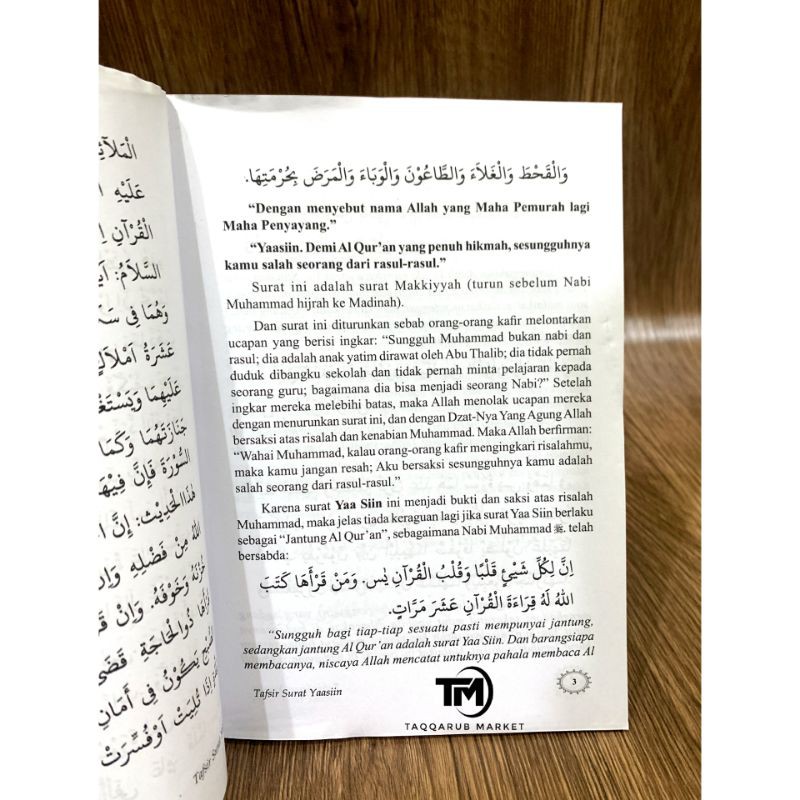 الْمَلَآئِ
عَلَيْهِ
الْقُرْآنِ
السَّلَامُ:
وَهُمَا فِى
عَشَرَةُ اَمْلَاكٍ
عَلَيْهِمَا وَيَسْتَغْ
جَنَازَتَهُمَا وَكَمَا
السُّوْرَةِ فَإِنَّ فِيْهَا
هٰذَا الْحَدِيْثِ: اِنَّ
اللهُ مِنْ فَضْلِهِ وَاِنْ
حُزْنُهُ وَخَوْفُهُ. وَاِنْ
ذُوالْحَاجَةِ
يَكُوْنُ فِى اَمَانِ
اِذَا تُلِيَتْ اَوْفُسِّرَتْ
وَالْقَحْطَ وَالْغَلَاءَ وَالطَّاعُوْنَ وَالْوَبَاءَ وَالْمَرَضَ بِحُرْمَتِهَا.
“Dengan menyebut nama Allah yang Maha Pemurah lagi
Maha Penyayang.”
“Yaasiin. Demi Al Qur’an yang penuh hikmah, sesungguhnya
kamu salah seorang dari rasul-rasul.”
Surat ini adalah surat Makkiyyah (turun sebelum Nabi
Muhammad hijrah ke Madinah).
Dan surat ini diturunkan sebab orang-orang kafir melontarkan
ucapan yang berisi ingkar: “Sungguh Muhammad bukan nabi dan
rasul; dia adalah anak yatim dirawat oleh Abu Thalib; dia tidak pernah
duduk dibangku sekolah dan tidak pernah minta pelajaran kepada
seorang guru; bagaimana dia bisa menjadi seorang Nabi?” Setelah
ingkar mereka melebihi batas, maka Allah menolak ucapan mereka
dengan menurunkan surat ini, dan dengan Dzat-Nya Yang Agung Allah
bersaksi atas risalah dan kenabian Muhammad. Maka Allah berfirman:
“Wahai Muhammad, kalau orang-orang kafir mengingkari risalahmu,
maka kamu jangan resah; Aku bersaksi sesungguhnya kamu adalah
salah seorang dari rasul-rasul.”
Karena surat Yaa Siin ini menjadi bukti dan saksi atas risalah
Muhammad, maka jelas tiada keraguan lagi jika surat Yaa Siin berlaku
sebagai “Jantung Al Qur’an”, sebagaimana Nabi Muhammad ﷺ. telah
bersabda:
اِنَّ لِكُلِّ شَيْئٍ قَلْبًا وَقُلْبُ الْقُرْآنِ يٰس. وَمَنْ قَرَأَهَا كَتَبَ
اللهُ لَهُ قِرَاءَةَ الْقُرْآنِ عَشَرَ مَرَّاتٍ.
“Sungguh bagi tiap-tiap sesuatu pasti mempunyai jantung,
sedangkan jantung Al Qur’an adalah surat Yaa Siin. Dan barangsiapa
membacanya, niscaya Allah mencatat untuknya pahala membaca Al
Tafsir Surat Yaasiin
3
TM
TAQQARUB MARKET